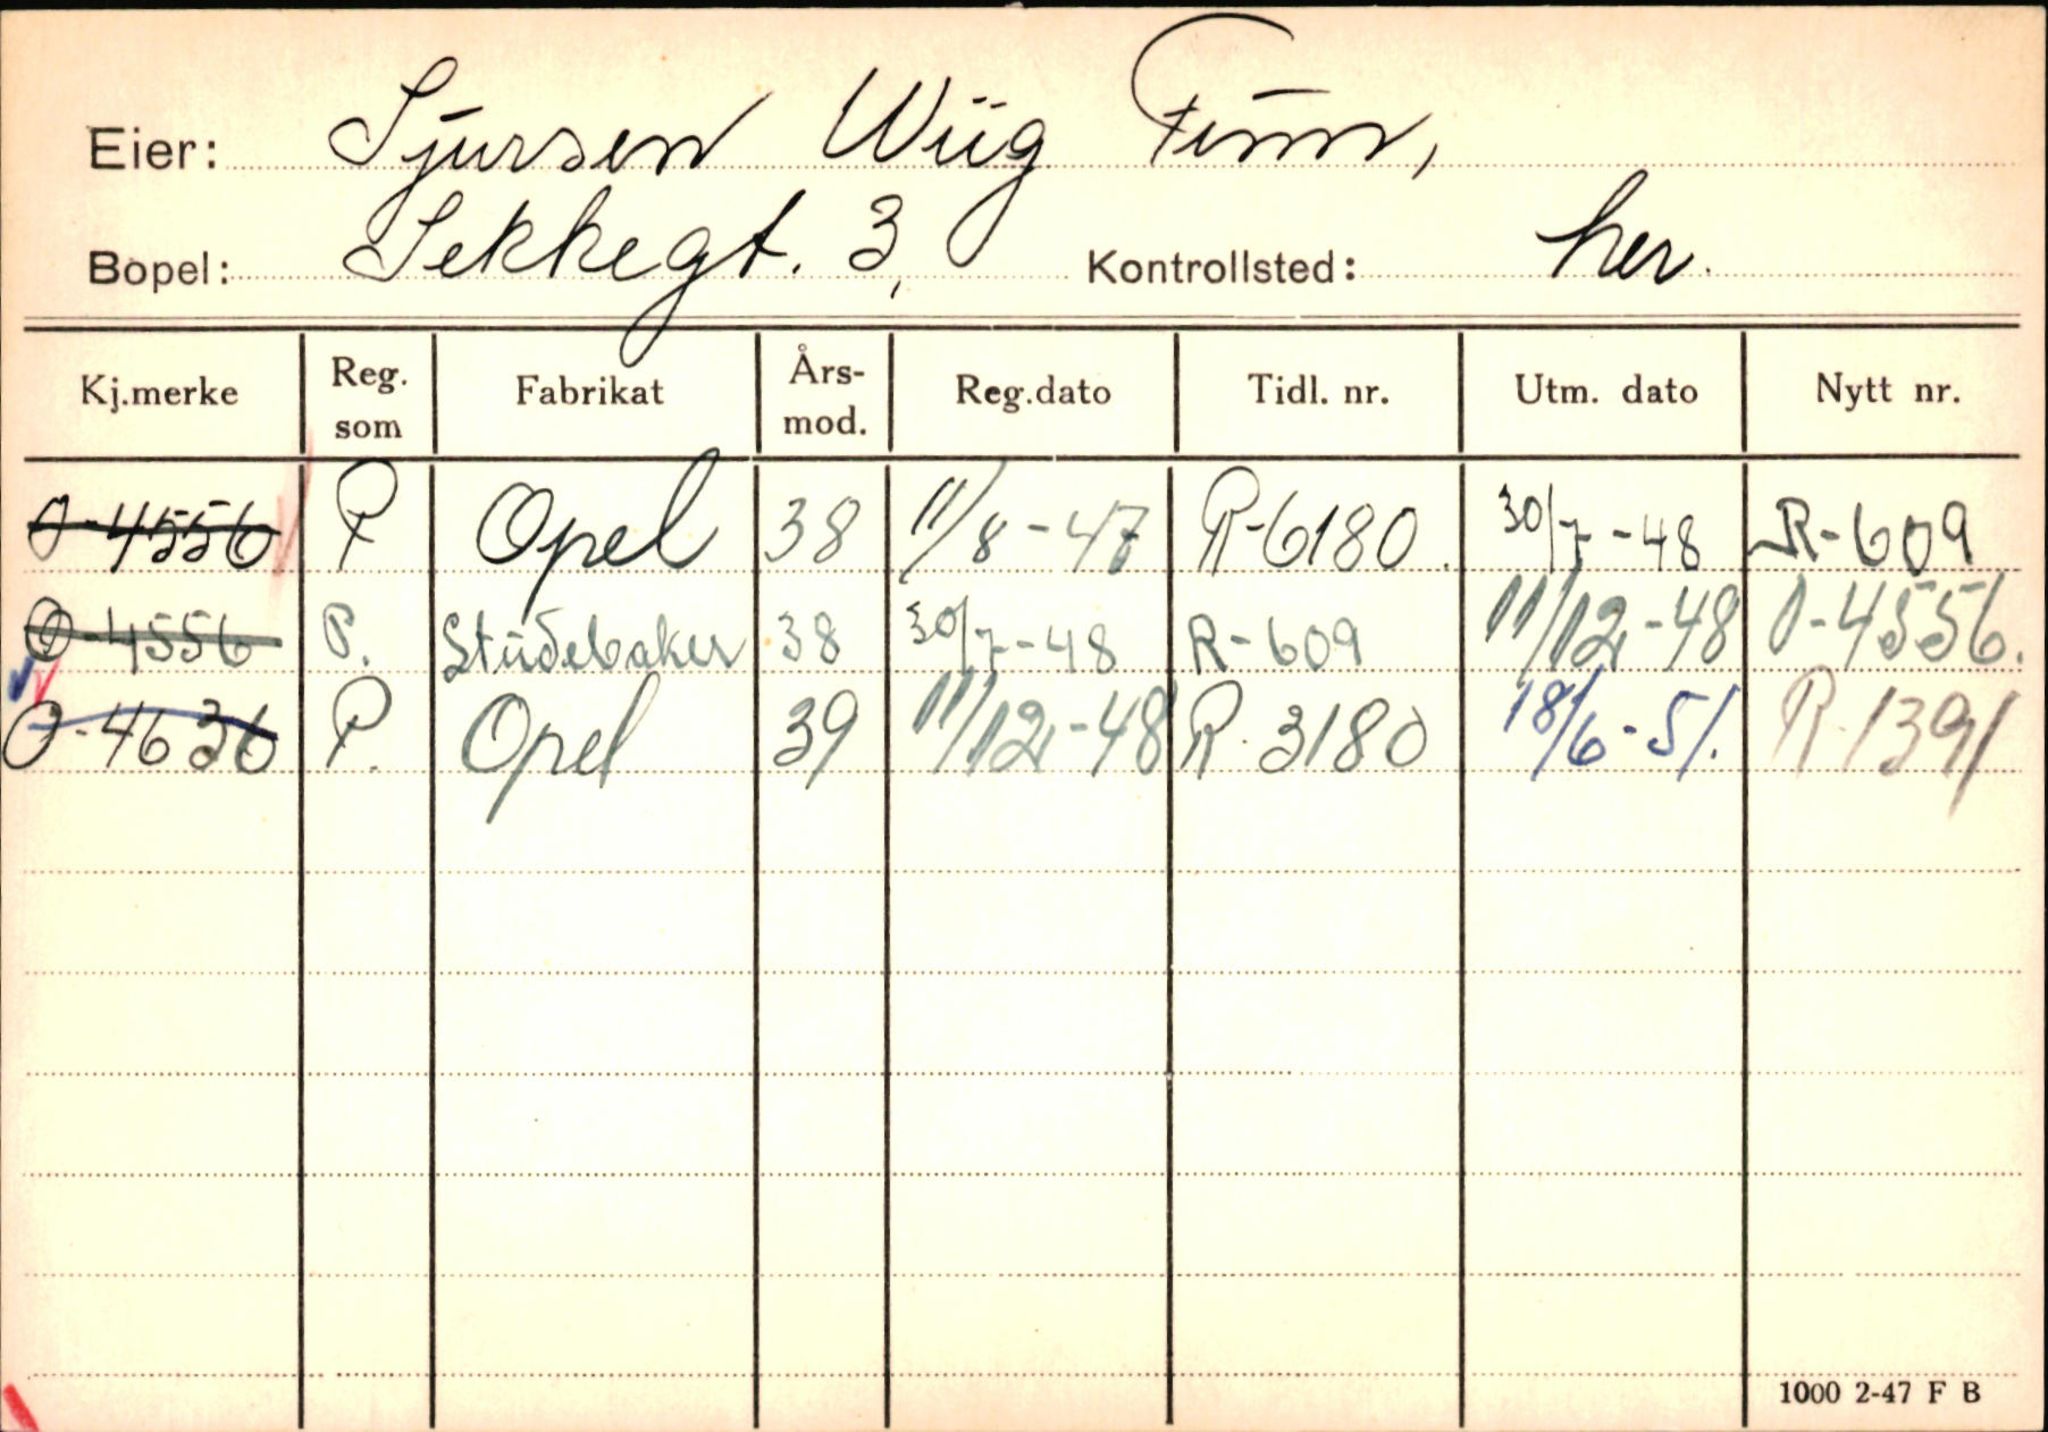 Eier: Sjursen Wiig Finn,
Bopel: Sekkegt. 3, Kontrollsted: her.
Kj.merke Reg. som Fabrikat Års- mod. Reg.dato Tidl. nr. Utm. dato Nytt nr.
O-4556 P Opel 38 11/8-47 R-6180. 30/7-48 R-609
O-4556 P. Studebaker 38 30/7-48 R-609 11/12-48 O-4556.
O-4636 P. Opel 39 11/12-48 R-3180 18/6-51. R-1391
1000 2-47 F B